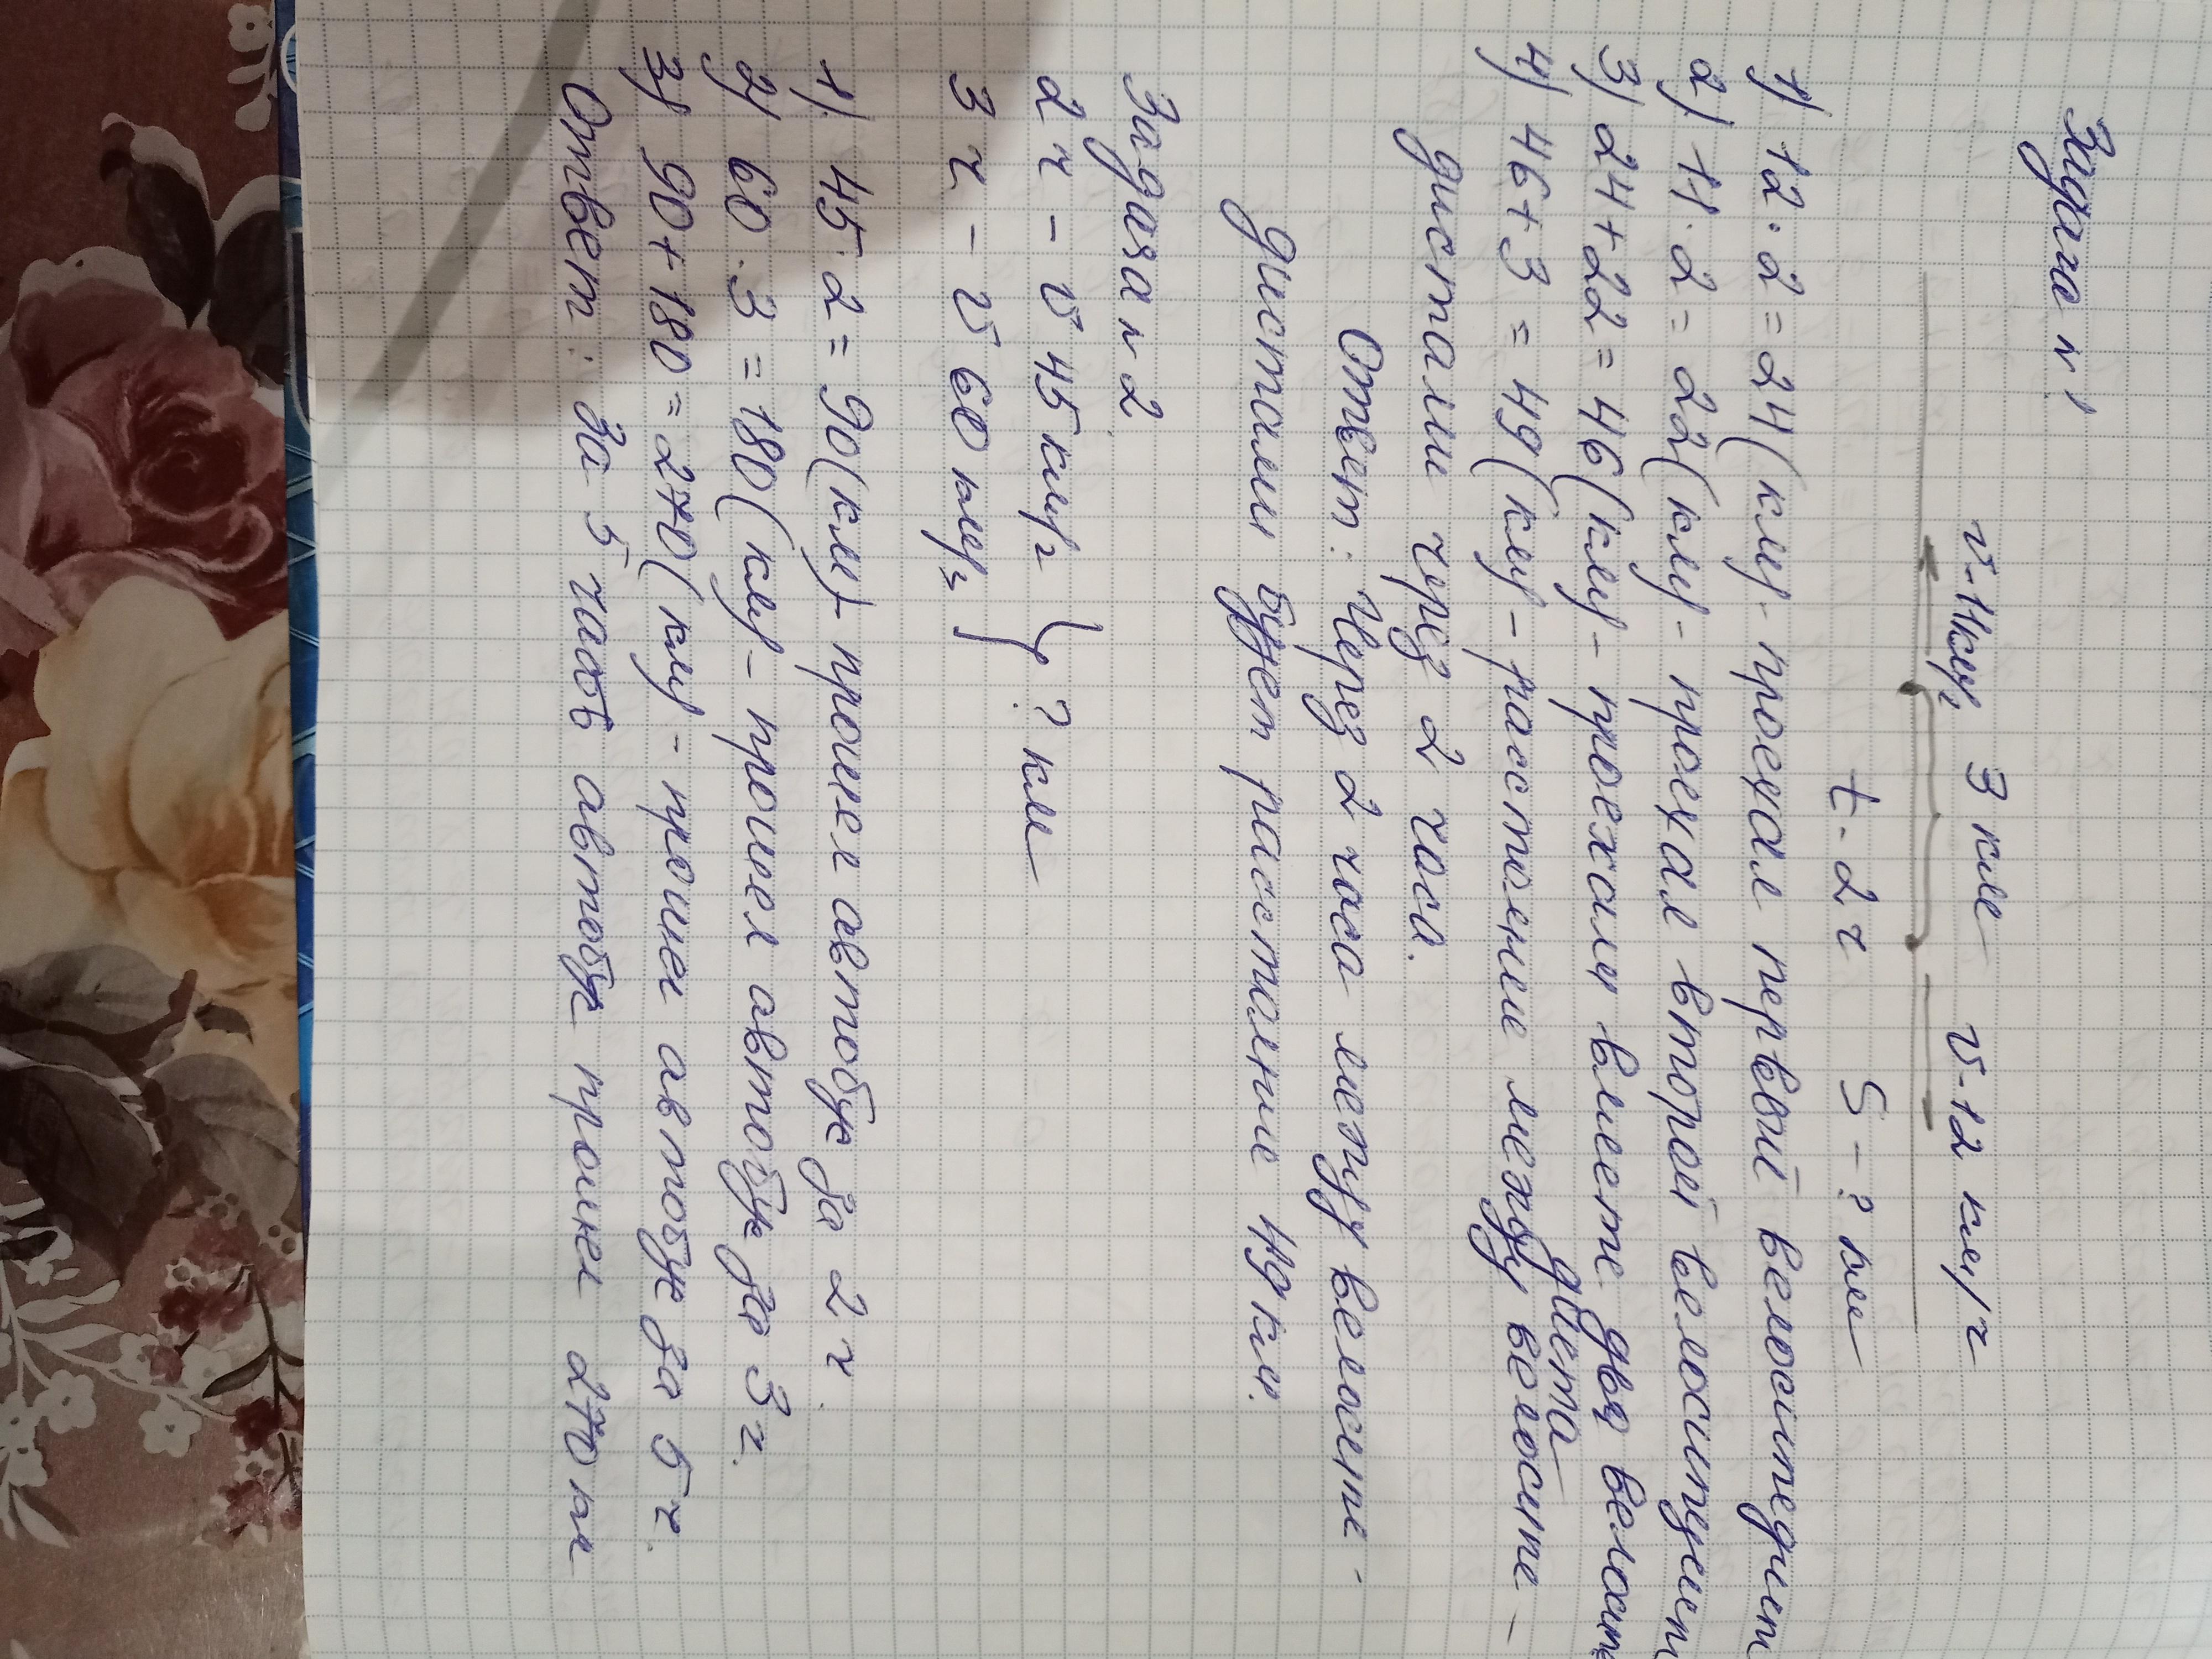 Задача № 1
v-11км/ч 3 км v-12 км/ч
t-2ч S-? км
1) 12·2=24(км)-проехал первый велосипедист
2) 11·2=22(км)-проехал второй велосипедист
3) 24+22=46(км)-проехали вместе два велосип
диста
4) 46+3=49(км)-расстояние между велосипе-
дистами через 2 часа.
Ответ: Через 2 часа между велосипе-
дистами будет расстояние 49 км.
Задача № 2
2 ч - v 45 км/ч
} ? км
3 ч - v 60 км/ч
1) 45·2=90(км)-прошел автобус за 2 ч.
2) 60·3=180(км)-прошел автобус за 3 ч.
3) 90+180=270(км)-прошел автобус за 5 ч.
Ответ: За 5 часов автобус прошел 270 км